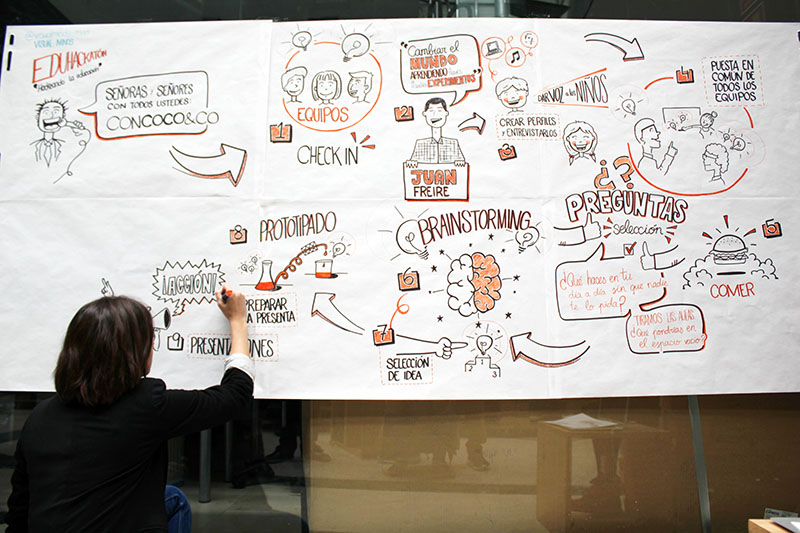 VISUAL MINDS
EDUHACKATÓN
"Hackeando la educación"
SEÑORAS Y SEÑORES
CON TODOS USTEDES:
CONCOCO&CO
EQUIPOS
1
CHECK IN
"Cambiar el
MUNDO
APRENDIENDO
EXPERIMENTOS"
2
JUAN
FREIRE
CREAR PERFILES
Y ENTREVISTARLOS
3
DAR VOZ a los NIÑOS
4
PUESTA EN
COMÚN DE
TODOS LOS
EQUIPOS
¿?
PREGUNTAS
selección
¿Qué haces en tu
día a día sin que nadie
te lo pida?
TIRAMOS LAS AULAS
¿Qué pondrías en
el espacio vacío?
5
COMER
BRAINSTORMING
6
7
SELECCIÓN
DE IDEA
2 1 3
8
PROTOTIPADO
PREPARAR
LA PRESENTA
¡ACCIÓN!
9
PRESENTACIONES